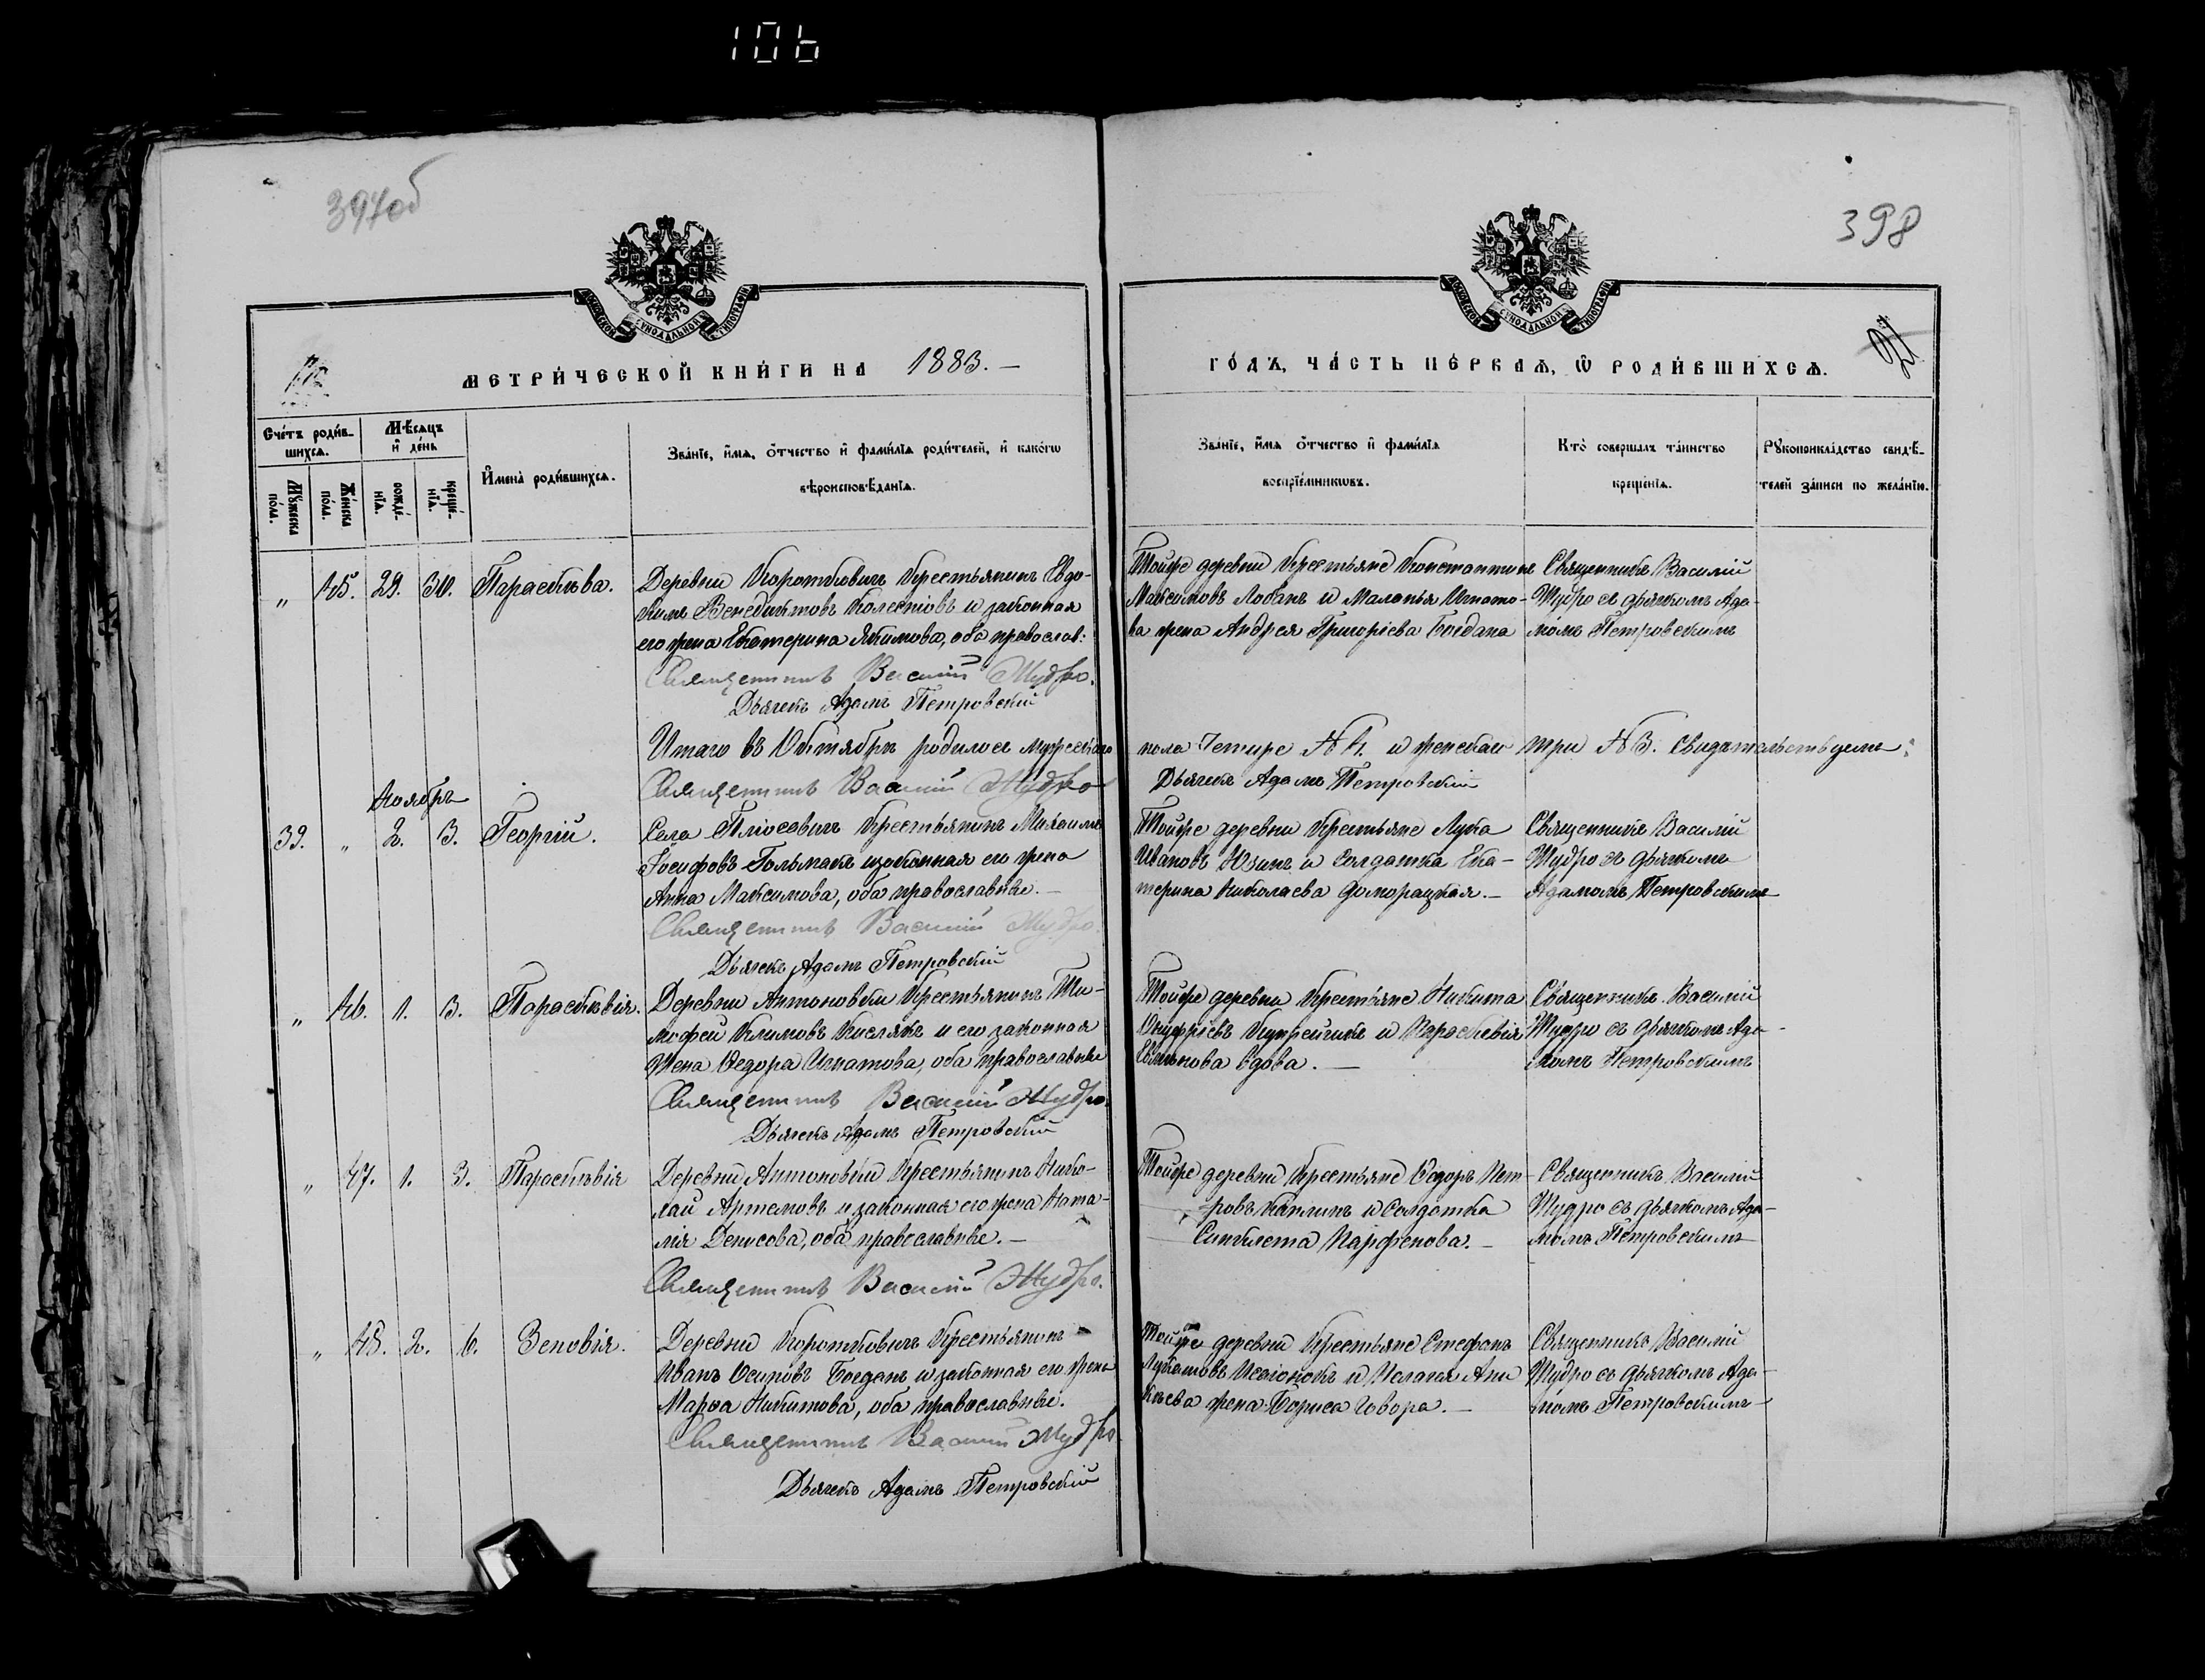 106
397об
398
МОСКОВСКОЙ СѴНОДАЛЬНОЙ ТИПОГРАФІИ
МОСКОВСКОЙ СѴНОДАЛЬНОЙ ТИПОГРАФІИ
МЕТРИ́ЧЕСКОЙ КНИ́ГИ НА 1883. —
ГО́ДЪ, ЧА́СТЬ ПЕ́РВАѦ, Ѽ РОДИ́ВШИХСѦ.
Сче́тъ роди́в-
шихсѧ.
Мѣ́сѧцъ
и҆ де́нь
Мꙋ́жеска
по́ла.
Же́нска
по́ла.
рожде́-
нїѧ.
креще́-
нїѧ.
И҆мена̀ роди́вшихсѧ.
Зва́нїе, и҆́мѧ, ѻ҆́тчество и҆ фами́лїѧ роди́телей, и҆ како́гѡ
вѣроисповѣ́данїѧ.
Зва́нїе, и҆́мѧ ѻ҆́тчество и҆ фами́лїѧ
воспрїе́мникѡвъ.
Кто̀ соверша́лъ та́инство
креще́нїѧ.
Рꙋкоприкла́дство свидѣ́-
телей за́писи по жела́нїю.
„ 45. 28. 30. Параскѣва.
Деревни Короткович Крестьянинъ Евдо-
кимъ Венедиктовъ и законная
его жена Екатерина Якимова, оба православ:
Священникъ Василій Мудро.
Дьячекъ Адамъ Петровскій
Тойже деревни Крестьяне Константинъ
Максимовъ Лобанъ и Маланья Игнато-
ва жена Андрея Григоріева Богдана
Священникъ Василій
Мудро съ дьячкомъ Ада-
момъ Петровскимъ
Итого въ Октябрѣ родилося мужескаго
пола Четыре № 4. и женскаго три № 3. свидѣтельствуемъ:
Священникъ Василій Мудро
Дьячекъ Адамъ Петровскій
Ноябрь
39. „ 2. 3. Георгій.
Села Крестьянинъ Михаилъ
Іосифовъ Гольмакъ изаконная его жена
Анна Максимова, оба православные. —
Священникъ Василій Мудро.
Дьячекъ Адамъ Петровскій
Тойже деревни Крестьяне Лука
Ивановъ и Солдатка Ека-
терина Николаева Доморацкая. —
Священникъ Василій
Мудро съ дьячкомъ
Адамомъ Петровскимъ
„ 46. 1. 3. Параскѣвія.
Деревни Антоновки Крестьянинъ Ти-
мофей Климовъ Кислякъ и его законная
Жена Ѳедора Игнатова, оба православные
Священникъ Василій Мудро.
Дьячекъ Адамъ Петровскій
Тойже деревни Крестьяне Никита
Онуфріевъ и Параскевія
вдова. —
Священникъ Василій
Мудро съ дьячкомъ Ада-
момъ Петровскимъ
„ 47. 1. 3. Параскѣвія
Деревни Антоновки Крестьянинъ Нико-
лай Артемовъ и законная его жена Ната-
лія Денисова, оба православные. —
Священникъ Василій Мудро.
Тойже деревни Крестьяне Ѳедоръ Пет-
ровъ Каплинъ и Солдатка
Синклета Парфенова. —
Священникъ Василій
Мудро съ дьячкомъ Ада-
момъ Петровскимъ
„ 48. 2. 6. Зеновія.
Деревни Короткович Крестьянинъ
Иванъ Осиповъ Богданъ и законная его жена
Марѳа Никитова, оба православные.
Священникъ Василій Мудро
Дьячекъ Адамъ Петровскій
Тойже деревни Крестьяне Стефанъ
и Пелагея Ани
жена Бориса Говора. —
Священникъ Василій
Мудро съ дьячкомъ Ада-
момъ Петровскимъ